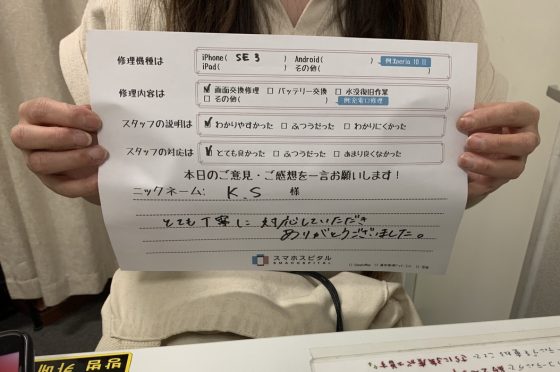 修理機種は
iPhone( SE 3 ) Android( ) 例:Xperia 10 Ⅲ
iPad( ) その他( )
修理内容は
☑ 画面交換修理 □ バッテリー交換 □ 水没復旧作業
□ その他( ) 例:充電口修理
スタッフの説明は
☑ わかりやすかった □ ふつうだった □ わかりにくかった
スタッフの対応は
☑ とても良かった □ ふつうだった □ あまり良くなかった
本日のご意見・ご感想を一言お願いします!
ニックネーム: K.S 様
とても丁寧に対応していただき
ありがとうございました。
スマホスピタル
SMAHOSPITAL
방범 카메